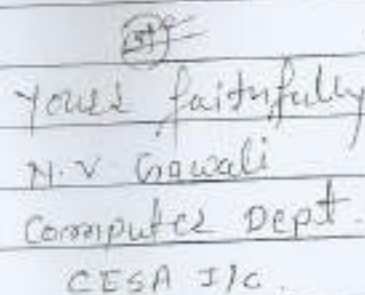 Yours faithfully
N.V Gawali
Computer Dept.
CESA I/c.